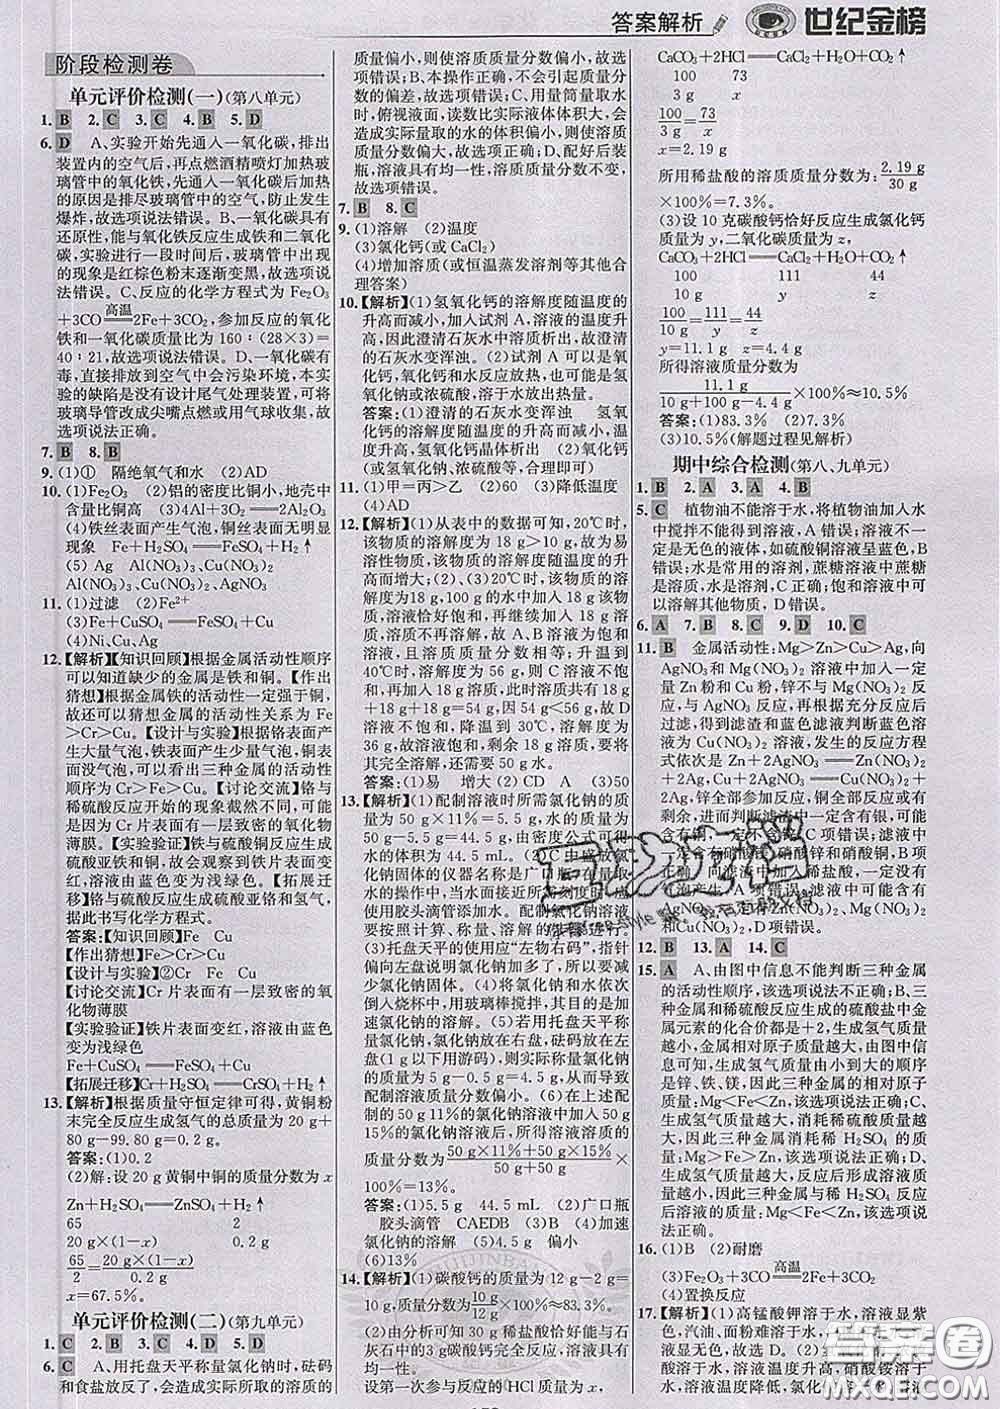 答案解析
世纪金榜
阶段检测卷
单元评价检测(一)(第八单元)
1. B 2. C 3. C 4. B 5. D
6. D A、实验开始先通入一氧化碳,排出
装置内的空气后,再点燃酒精喷灯加热玻
璃管中的氧化铁,先通入一氧化碳后加热
的原因是排尽玻璃管中的空气,防止发生
爆炸,故选项说法错误。B、一氧化碳具有
还原性,能与氧化铁反应生成铁和二氧化
碳,实验进行一段时间后,玻璃管中出现
的现象是红棕色粉末逐渐变黑,故选项说
法错误。C、反应的化学方程式为Fe₂O₃
+3CO 高温 2Fe+3CO₂,参加反应的氧化
铁和一氧化碳质量比为160:(28×3)=
40:21,故选项说法错误。D、一氧化碳有
毒,直接排放到空气中会污染环境,本实
验的缺陷是没有设计尾气处理装置,可将
玻璃导管改成尖嘴点燃或用气球收集,故
选项说法正确。
7. B 8. B
9. (1)① 隔绝氧气和水 (2)AD
10. (1)Fe₂O₃ (2)铝的密度比铜小,地壳中
含量比铜高 (3)4Al+3O₂══2Al₂O₃
(4)铁丝表面产生气泡,铜丝表面无明显
现象 Fe+H₂SO₄══FeSO₄+H₂↑
(5) Ag Al(NO₃)₃、Cu(NO₃)₂
Al(NO₃)₃、Cu(NO₃)₂、AgNO₃
11. (1)过滤 (2)Fe²⁺
(3)Fe+CuSO₄══FeSO₄+Cu
(4)Ni、Cu、Ag
12.【解析】【知识回顾】根据金属活动性顺序
可以知道缺少的金属是铁和铜。【作出
猜想】根据金属铁的活动性一定强于铜,
故还可以猜想金属的活动性关系为 Fe
>Cr>Cu。【设计与实验】根据铬表面产
生大量气泡,铁表面产生少量气泡,铜表
面没有气泡,可以看出三种金属的活动性
顺序为Cr>Fe>Cu。【讨论交流】铬与
稀硫酸反应开始的现象截然不同的原
因是因为Cr片表面有一层致密的氧化物
薄膜。【实验验证】铁与硫酸铜反应生成
硫酸亚铁和铜,故会观察到铁片表面变
红,溶液由蓝色变为浅绿色。【拓展迁
移】铬与硫酸反应生成硫酸亚铬和氢气,
据此书写化学方程式。
答案:【知识回顾】Fe Cu
【作出猜想】Fe>Cr>Cu
【设计与实验】② Fe Cu
【讨论交流】Cr片表面有一层致密的氧
化物薄膜
【实验验证】铁片表面变红,溶液由蓝色
变为浅绿色
Fe+CuSO₄══FeSO₄+Cu
【拓展迁移】Cr+H₂SO₄══CrSO₄+H₂↑
13.【解析】根据质量守恒定律可得,黄铜粉
末完全反应生成氢气的总质量为20 g+
80 g-99.80 g=0.2 g。
答案:(1)0.2
(2)解:设20 g黄铜中铜的质量分数为x
Zn+H₂SO₄══ZnSO₄+H₂↑
65 2
20 g×(1-x) 0.2 g
65/2=20 g×(1-x)/0.2 g
x=67.5%。
单元评价检测(二)(第九单元)
1. C 2. B 3. C 4. D 5. D
6. C A、用托盘天平称量氯化钠时,砝码
和食盐放反了,会造成实际所取的溶质的
质量偏小,则使溶质质量分数偏小,故选
项错误;B、本操作正确,不会引起质量分
数的偏差,故选项错误;C、用量筒量取水
时,俯视液面,读数比实际液体体积大,会
造成实际量取的水的体积偏小,则溶质质
量分数偏大,故选项正确;D、配好后装
瓶,溶液具有均一性,溶质质量分数不变,
故选项错误。
7. B 8. C
9. (1)溶解 (2)温度
(3)氯化钙(或CaCl₂)
(4)增加溶质(或恒温蒸发溶剂等其他合
理答案)
10.【解析】(1)氢氧化钙的溶解度随温度的
升高而减小,加入试剂A,溶液的温度升
高,因此澄清石灰水中溶质析出,故澄清
的石灰水变浑浊。(2)试剂A可以是氧
化钙,氧化钙和水反应放热,也可能是氢
氧化钠或浓硫酸,溶于水放出热量。
答案:(1)澄清的石灰水变浑浊 氢氧
化钙的溶解度随温度的升高而减小,温
度升高,氢氧化钙晶体析出 (2)氧化钙
(或氢氧化钠、浓硫酸等,合理即可)
11. (1)甲=丙>乙 (2)60 (3)降低温度
(4)AD
12.【解析】(1)从表中的数据可知,20℃时,
该物质的溶解度为18 g>10 g,故为易
溶性物质,该物质的溶解度随温度的升
高而增大;(2)(3)20℃时,该物质的溶
解度为18 g,故第一次加入18 g溶质
后,溶液恰好饱和,再继续加入18 g溶
质,溶质不再溶解,故A、B对应的溶液
的溶质质量分数相等;然后升温到
40℃时,溶解度为56 g,则C溶液不饱
和,再加入18 g溶质,此时的溶质质量为
18 g+18 g+18 g=54 g,因54 g<56 g,故D
溶液不饱和,降温到30℃,溶解度为
36 g,故溶液饱和,剩余18 g溶质,要将其
完全溶解,还需要50 g水。
答案:(1)易 增大 (2)CD A (3)50
13.【解析】(1)配制溶液时所需氯化钠的质
量为50 g×11%=5.5 g,水的质量为
50 g-5.5 g=44.5 g,由密度公式可得
水的体积为44.5 mL。(2)由盛放氯
化钠的仪器名称是广口瓶
水的操作中,当水面接近所需刻度时,
用胶头滴管添加水。配制氯化钠溶液
要按照计算、称量、溶解的步骤进行。
(3)托盘天平的使用应“左物右码”,指针
偏向左盘说明氯化钠偏多,故应减少氯
化钠固体。(4)将氯化钠和水依次倒入
倒入烧杯中,用玻璃棒搅拌,其目的是加
速氯化钠溶解。(5)若用托盘天平称
量氯化钠,氯化钠放在右盘,砝码放在
左盘(1 g以下用游码),则实际氯化钠
质量偏小。(6)在上述配
制的50 g11%的氯化钠溶液中加入50 g
15%的氯化钠溶液后,所得溶液的溶质
质量分数为(50 g×11%+50 g×15%)/(50 g+50 g)×
100%=13%。
答案:(1)5.5 g 44.5 mL (2)广口瓶
胶头滴管 CAEDB (3)B (4)加速
氯化钠的溶解 (5)4.5 g 偏小
(6)13%
14.【解析】(1)碳酸钙的质量为12 g-2 g=
10 g,质量分数为10 g/12 g×100%≈83.3%。
(2)由分析可知30 g稀盐酸恰好能与石
灰石中的3 g碳酸钙完全反应
设第一次参与反应的HCl质量为x,
CaCO₃+2HCl══CaCl₂+H₂O+CO₂↑
100 73
3 g x
100/3 g=73/x
x=2.19 g
所用稀盐酸的溶质质量分数为:2.19 g/30 g
×100%=7.3%。
(3)设10克碳酸钙恰好反应生成氯化钙
质量为y,二氧化碳质量为z,
CaCO₃+2HCl══CaCl₂+H₂O+CO₂↑
100 111 44
10 g y z
100/10 g=111/y=44/z
y=11.1 g z=4.4 g
所得溶液质量分数为
11.1 g/(10 g+100 g-4.4 g)×100%≈10.5%
答案:(1)83.3% (2)7.3%
(3)10.5%(解题过程见解析)
期中综合检测(第八、九单元)
1. B 2. A 3. A 4. B
5. C 植物油不能溶于水,将植物油加入水
中搅拌不能得到溶液,A错误;溶液不一
定是无色的液体,如硫酸铜溶液呈蓝色,B
错误;水是常用的溶剂,蔗糖溶液中蔗糖
是溶质,水是溶剂,C正确;饱和溶液中可
以溶解其他物质,D错误。
6. A 7. B 8. C 9. D 10. C
11. B 金属活动性:Mg>Zn>Cu>Ag,向
AgNO₃和Mg(NO₃)₂溶液中加入一定
量Zn粉和Cu粉,锌不与Mg(NO₃)₂、
AgNO₃反应,再根据充分反应后
过滤,得到滤渣和蓝色溶液判断蓝色溶
液为Cu(NO₃)₂溶液,发生的反应方程
式依次是Zn+2AgNO₃══Zn(NO₃)₂
+2Ag,Cu+2AgNO₃══Cu(NO₃)₂+
2Ag,锌全部参加反应,铜部分或全部反
应,进而判断滤渣中一定含有银,可能
含有铜,一定不含有锌,C项错误;滤液中
一定含有硝酸镁、硝酸锌和硝酸铜,B
正确。向滤渣中加入稀盐酸,一定没有
气泡产生,A项错误;
和Cu(NO₃)₂,D项错误。
12. B 13. A 14. C
15. A A、由图中信息不能判断三种金属
的活动性顺序,该选项说法不正确;B、三
种金属和稀硫酸反应生成的硫酸盐中
金属元素的化合价都是+2,生成氢气质量
越大,相对原子质量越小,由图中信
息可知,生成氢气质量由小到大的顺序
是锌、铁、镁,因此三种金属的相对原子
质量:Mg<Fe<Zn,该选项说法正确;C、
生成氢气质量越大,消耗稀硫酸质量越
大,因此三种金属消耗稀H₂SO₄的质
量:Mg>Fe>Zn,该选项说法正确;D、
生成氢气质量越大,反应后形成溶液质
量越小,因此三种金属与稀H₂SO₄反应
后溶液质量:Mg<Fe<Zn,该选项说法
正确。
16. (1)B (2)耐磨
(3)Fe₂O₃+3CO 高温 2Fe+3CO₂
(4)置换反应
17.【解析】(1)高锰酸钾溶于水,溶液显紫
色,汽油、面粉难溶于水,
故选